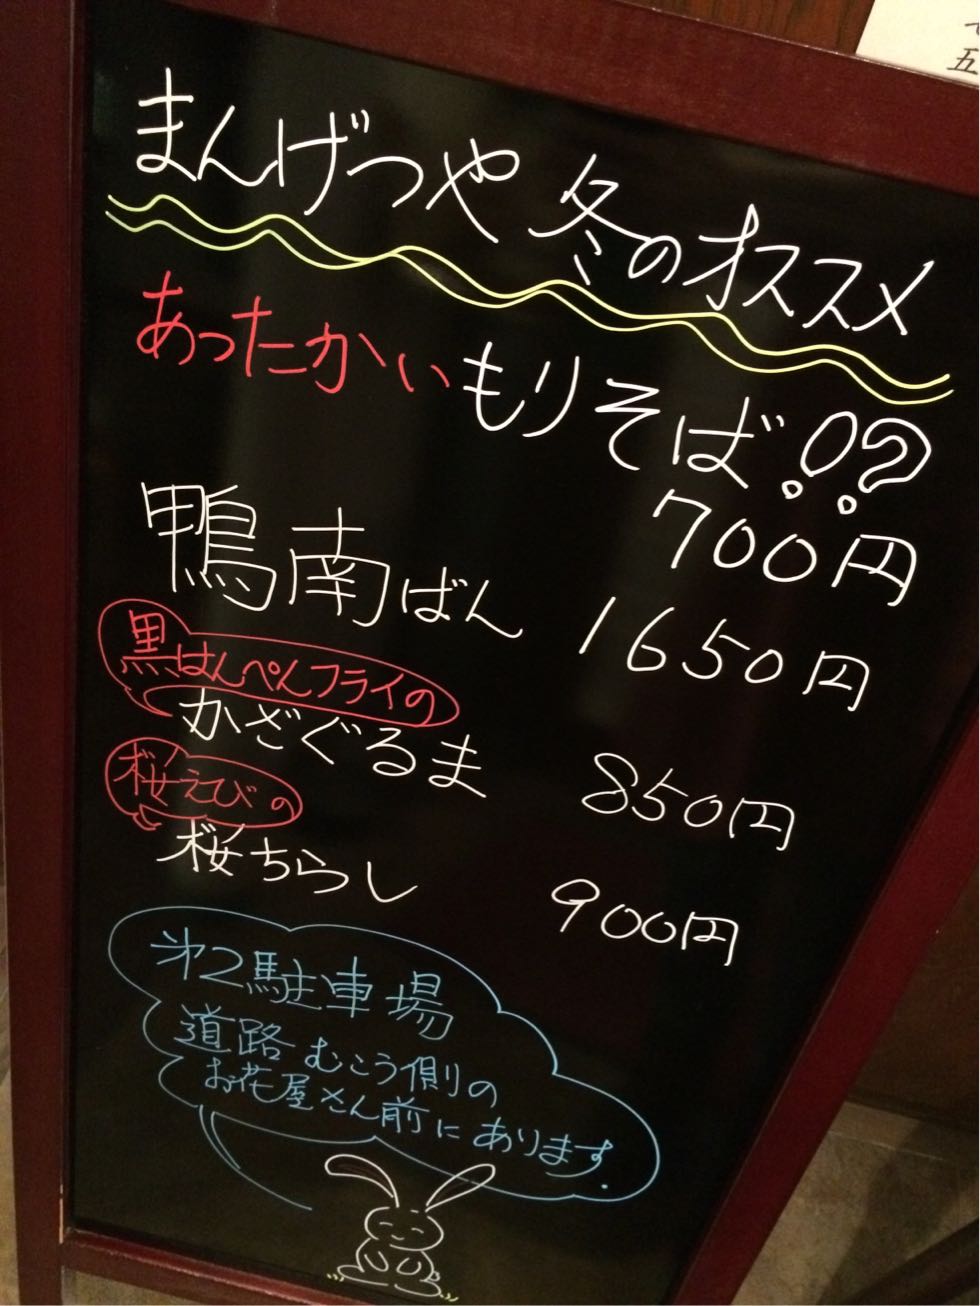 まんげつや 冬のオススメ
あったかいもりそば!?
700円
鴨南ばん 1650円
黒はんぺんフライの
かざぐるま 850円
桜えびの
桜ちらし 900円
㐧2駐車場
道路むこう側の
お花屋さん前にあります.
五